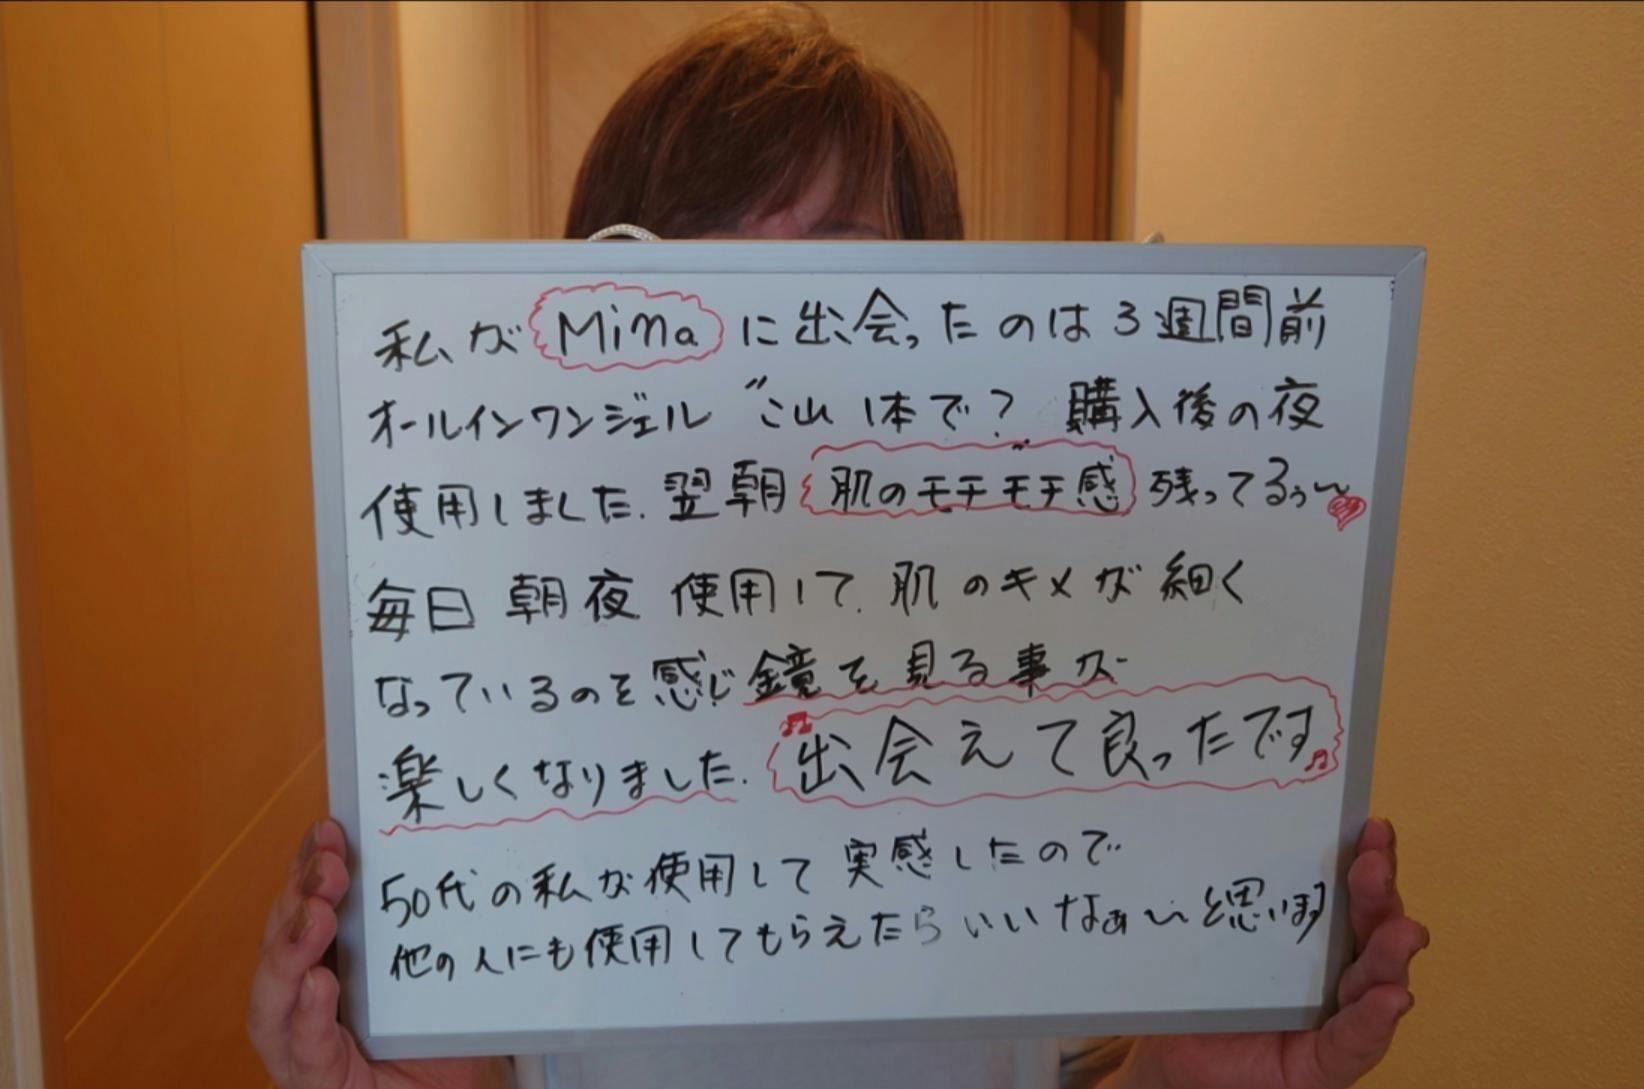 私が Mina に出会ったのは 3週間前
オールインワンジェル〝これ1本で? 購入後の夜
使用しました. 翌朝 肌のモチモチ感 残ってるぅ〜
毎日 朝夜 使用して. 肌のキメが細く
なっているのを感じ鏡を見る事が
楽しくなりました. 出会えて良ったです
50代の私が使用して実感したので
他の人にも使用してもらえたらいいなぁ〜と思います